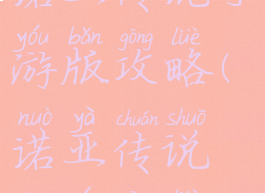 yóu bǎn gōng lüè
游版攻略(
nuò yà chuán shuō
诺亚传说